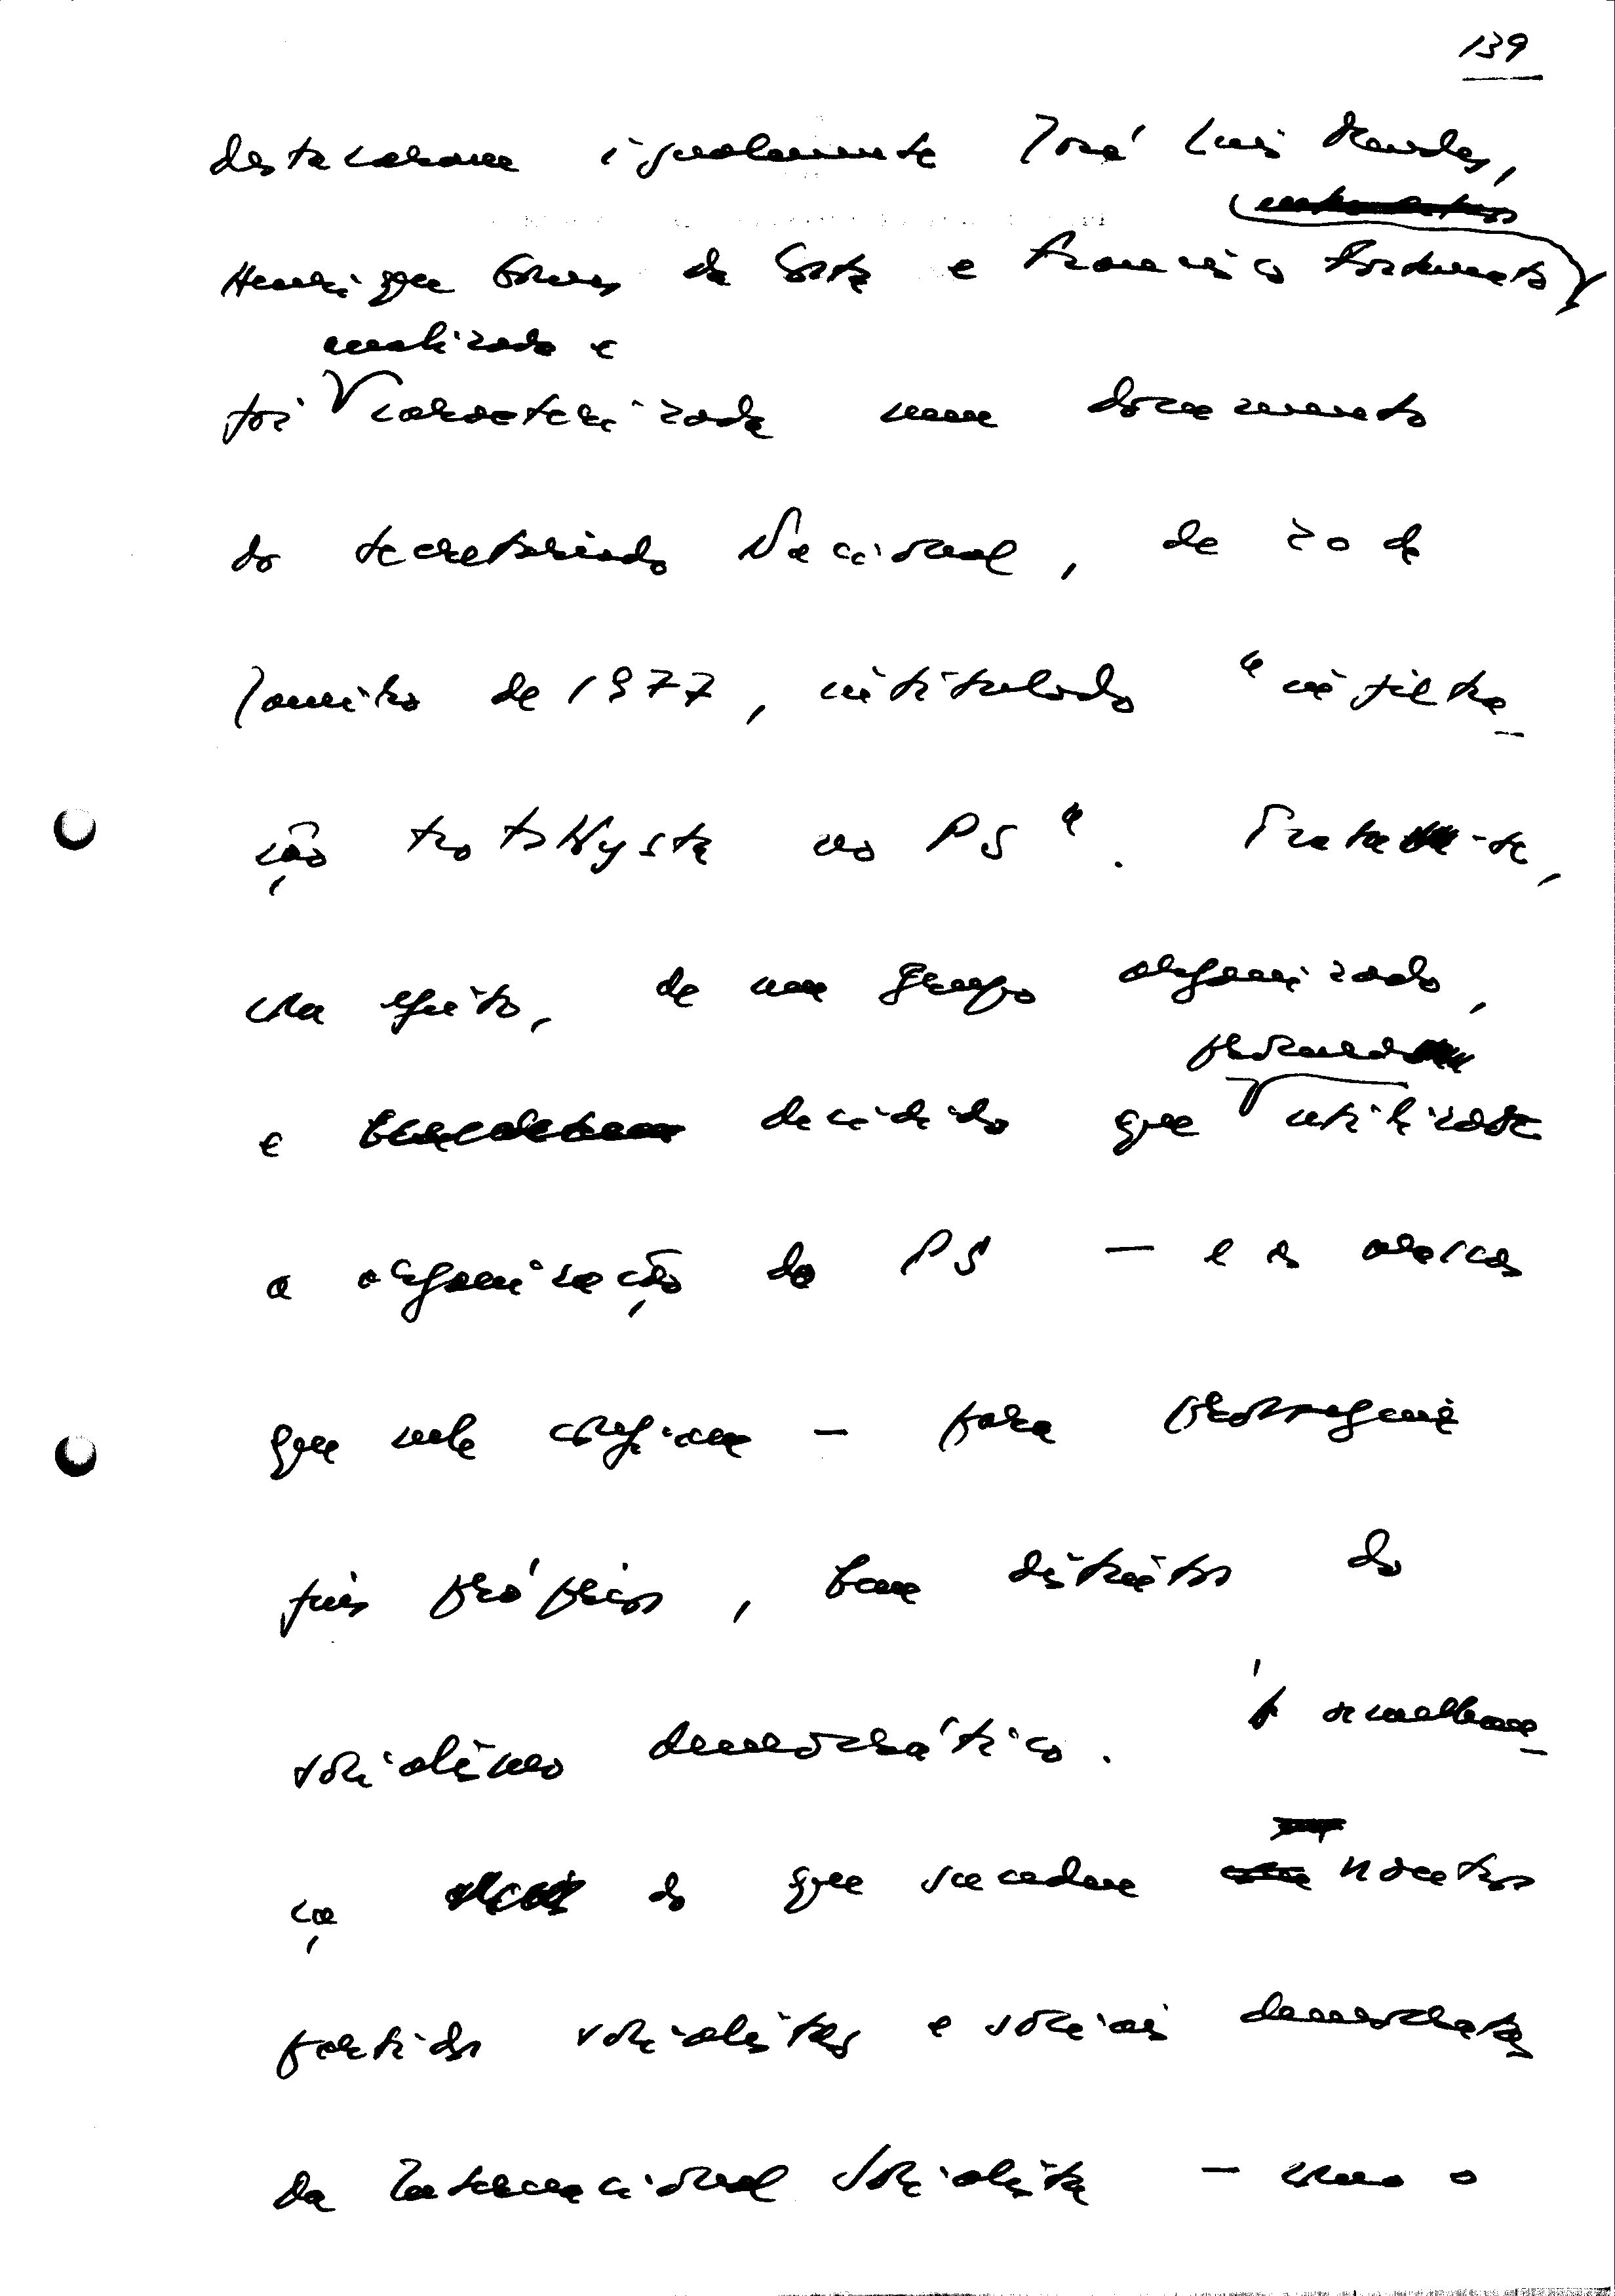 139
destacavam igualmente José Luís Mendes,
Henrique de Sota e Francisco Fortunato
analizado e
foi caracterizada num documento
do Secretariado Nacional, de 20 de
Janeiro de 1977, intitulado "infiltra-
ção trotskysta no PS". Trata-se,
com efeito, de um grupo organizado,
procurando
e decidido que utilizar
a organização do PS — e os meios
que nele — para prosseguir
fins próprios, bem distintos do
socialismo democrático. À semelhan-
ça do que sucedeu noutros
partidos socialistas e sociais democratas
da Internacional Socialista — como o